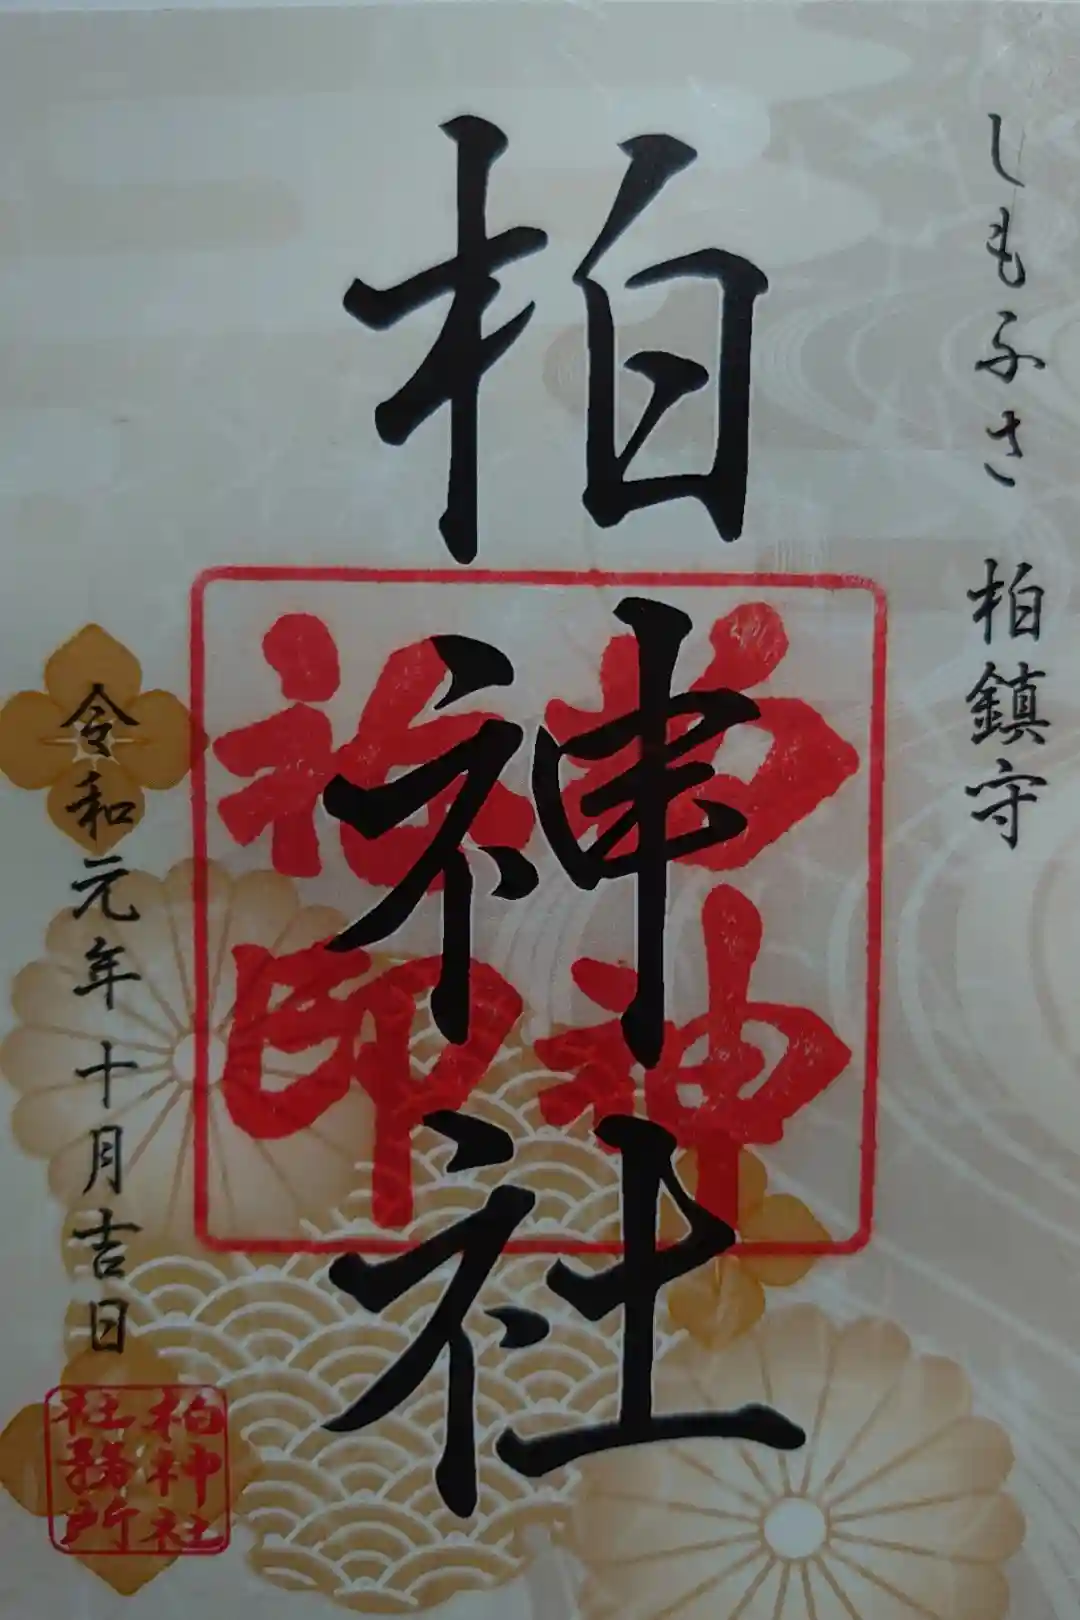 しもふさ 柏鎮守
柏神社
神
社印
令和元年十月吉日
柏神社
社務所